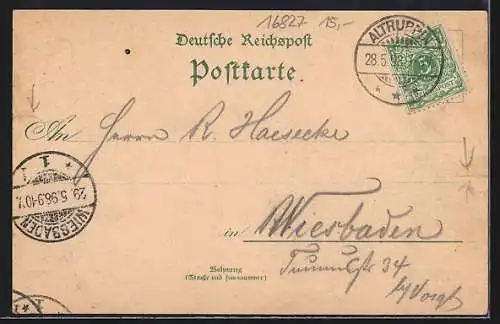 16827 15,-
Deutsche Reichspost
Postkarte.
ALTRUPPIN
28.5.
5
An Herrn R. Haesecke
WIESBADEN
29.5.96.9-10V.
1
in Wiesbaden
34
b/Voigt
Wohnung
(Straße und Hausnummer)